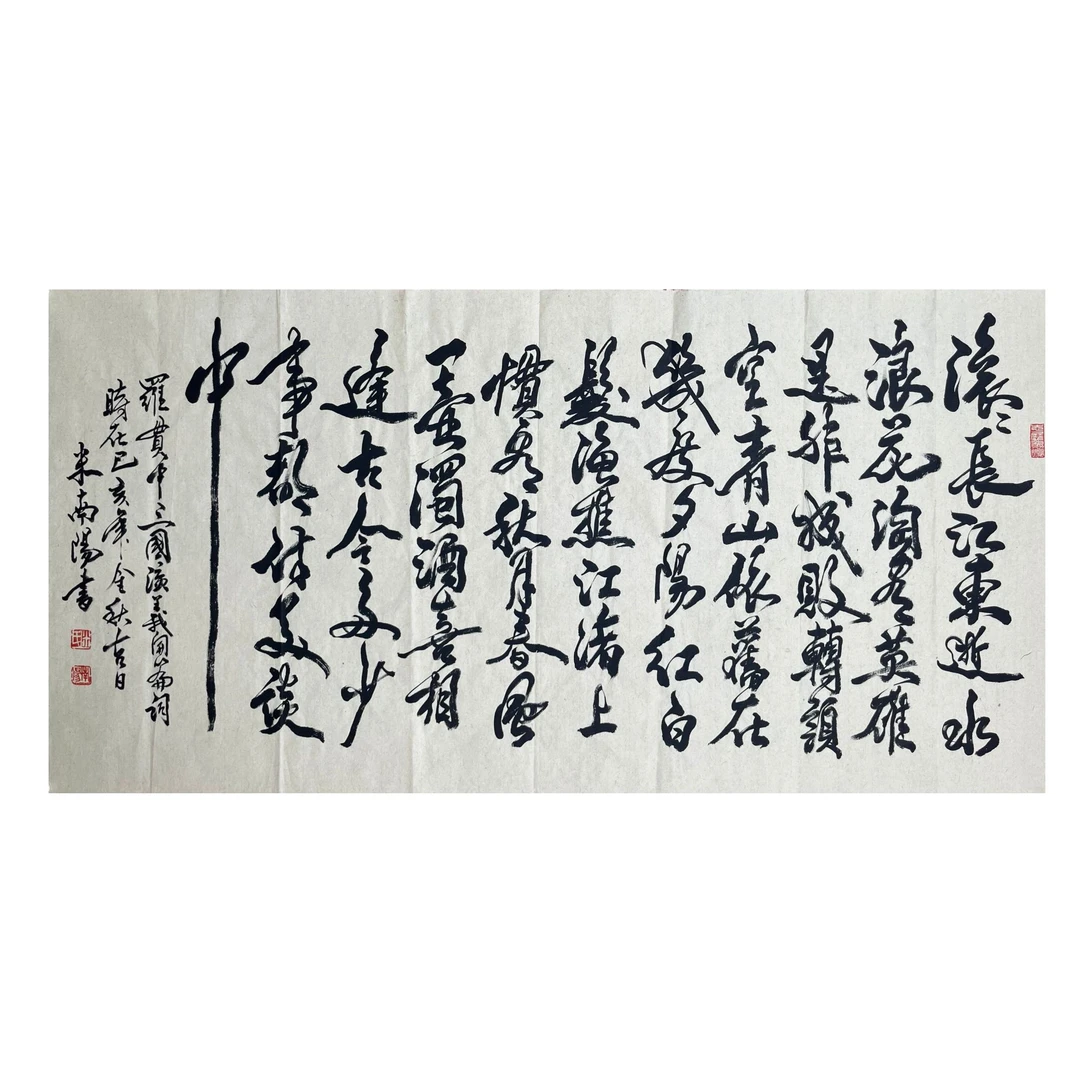 滚〻長江東逝水
浪花淘尽英雄
是非成敗轉頭
空青山依舊在
幾度夕陽紅白
髮漁樵江渚上
慣看秋月春風
一壺濁酒喜相
逢古今多少
事都付笑談
中
羅貫中三國演義開篇詞
時在己亥年金秋吉日
米南陽书